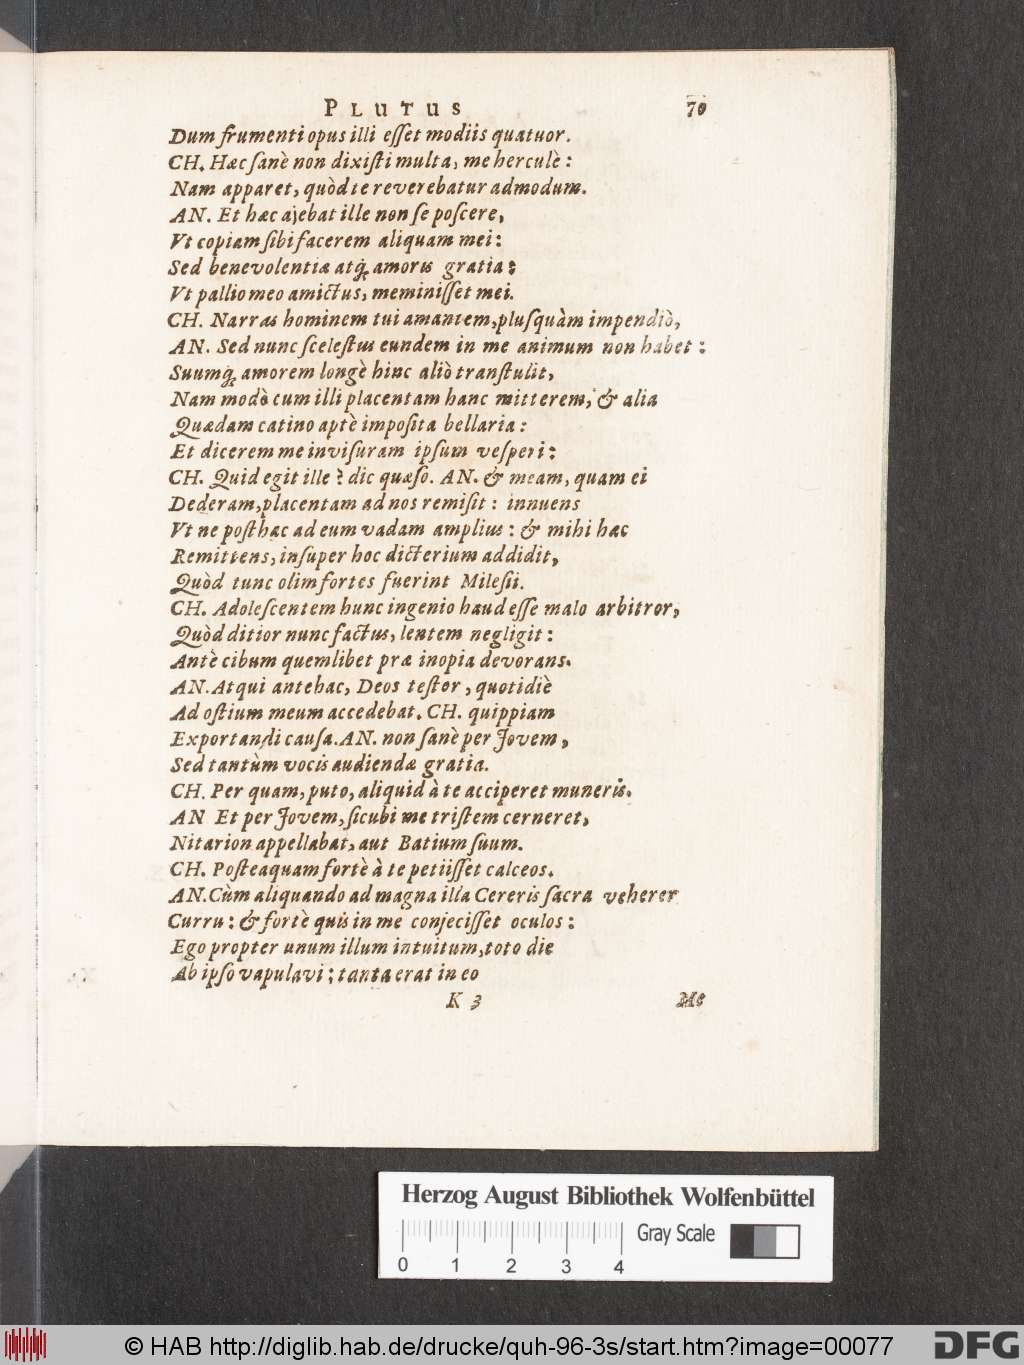 PLUTUS 70
Dum frumenti opus illi eſſet modiis quatuor.
CH. Hæc ſanè non dixiſti multa, me herculè:
Nam apparet, quòd te reverebatur admodum.
AN. Et hæc ajebat ille non ſe poſcere,
Vt copiam ſibi facerem aliquam mei:
Sed benevolentiæ atq́; amoris gratia:
Vt pallio meo amictus, meminiſſet mei.
CH. Narras hominem tui amantem, pluſquàm impendiò,
AN. Sed nunc ſceleſtus eundem in me animum non habet:
Suumq́; amorem longè hinc aliò tranſtulit,
Nam modò cum illi placentam hanc mitterem, & alia
Quædam catino aptè impoſita bellaria:
Et dicerem me inviſuram ipſum veſperi:
CH. Quid egit ille? dic quæſo. AN. & meam, quam ei
Dederam, placentam ad nos remiſit: innuens
Vt ne poſthac ad eum vadam amplius: & mihi hæc
Remittens, inſuper hoc dicterium addidit,
Quòd tunc olim fortes fuerint Mileſii.
CH. Adoleſcentem hunc ingenio haud eſſe malo arbitror,
Quòd ditior nunc factus, lentem negligit:
Antè cibum quemlibet præ inopia devorans.
AN. Atqui antehac, Deos teſtor, quotidiè
Ad oſtium meum accedebat. CH. quippiam
Exportandi cauſa. AN. non ſanè per Jovem,
Sed tantùm vocis audiendæ gratia.
CH. Per quam, puto, aliquid à te acciperet muneris.
AN Et per Jovem, ſicubi me triſtem cerneret,
Nitarion appellabat, aut Batium ſuum.
CH. Poſteaquam fortè à te petiiſſet calceos.
AN. Cùm aliquando ad magna illa Cereris ſacra veherer
Curru: & fortè quis in me conjeciſſet oculos:
Ego propter unum illum intuitum, toto die
Ab ipſo vapulavi: tanta erat in eo
K 3 Me
Herzog August Bibliothek Wolfenbüttel
0 1 2 3 4 Gray Scale
© HAB http://diglib.hab.de/drucke/quh-96-3s/start.htm?image=00077 DFG